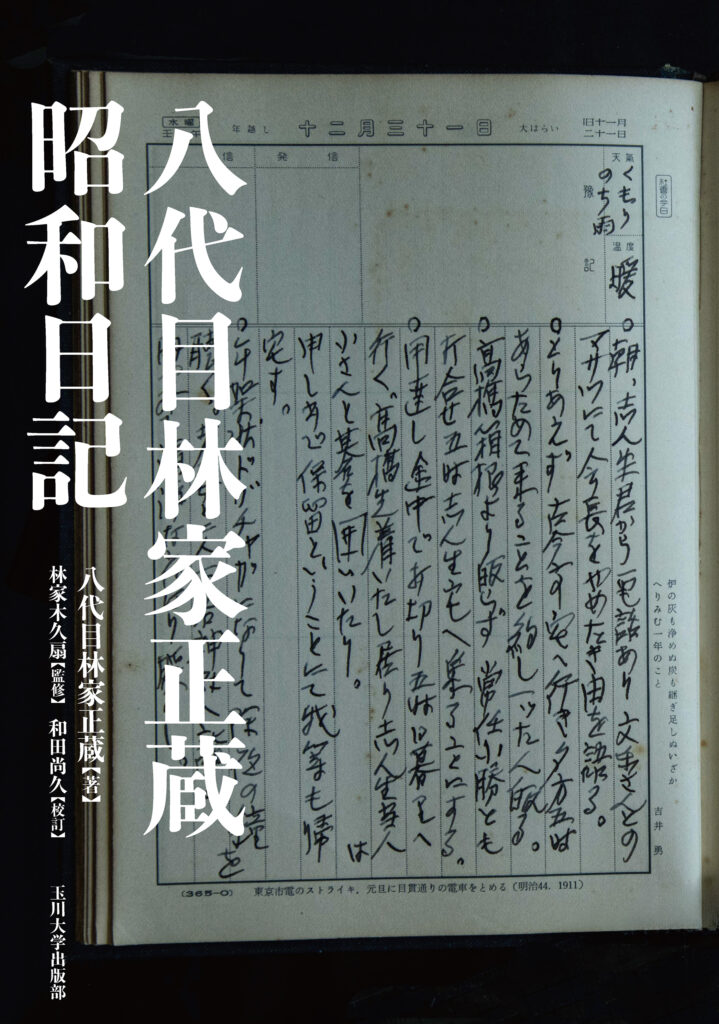 八代目林家正蔵
昭和日記
八代目林家正蔵【著】
林家木久扇【監修】 和田尚久【校訂】
玉川大学出版部
水曜
年越し
十二月三十一日
大はらい
旧十一月
二十一日
天気
くもり
のち雨
温度
暖
予記
発信
信
○朝、志ん生君から電話あり文楽さんとの
マサツにて会長をやめたき由を語る。
○とりあえず古今亭宅へ行き夕方五時
あらためて来ることを約し一ッたん帰る。
○高橋箱根より帰らず常任小勝とも
打合せ五時志ん生宅へ集ることにする。
○用達し途中で打切り五時日暮里へ
行く。高橋先着いたし居り志ん生本人は
小さんと碁を囲いいたり。
保留ということにて我等も帰
宅す。
聴く。
炉の灰も浄めぬ炭も継ぎ足しぬいざか
へりみむ一年のこと
吉井 勇
(365-0)
東京市電のストライキ，元旦に目貫通りの電車をとめる（明治44，1911）